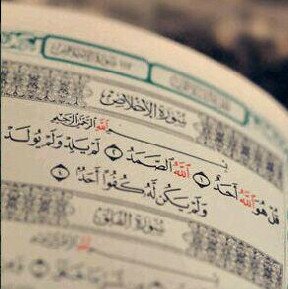 سورة الإخلاص
سُورَةُ الْإِخْلَاصِ
بِسْمِ اللَّهِ الرَّحْمَٰنِ الرَّحِيمِ
قُلْ هُوَ اللَّهُ أَحَدٌ ١ اللَّهُ الصَّمَدُ ٢ لَمْ يَلِدْ وَلَمْ يُولَدْ
٣ وَلَمْ يَكُن لَّهُ كُفُوًا أَحَدٌ ٤
سُورَةُ الْفَلَقِ